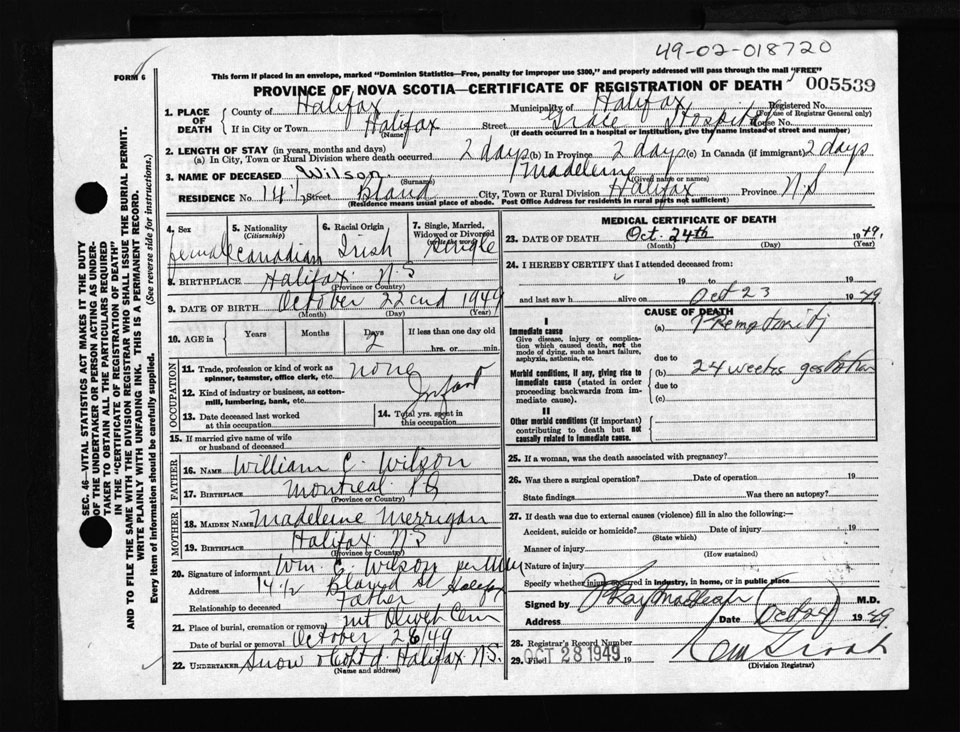 49-02-018720
FORM 6
This form if placed in an envelope, marked "Dominion Statistics—Free, penalty for improper use $300," and properly addressed will pass through the mail "FREE"
PROVINCE OF NOVA SCOTIA—CERTIFICATE OF REGISTRATION OF DEATH 005539
SEC. 46—VITAL STATISTICS ACT MAKES IT THE DUTY
OF THE UNDERTAKER OR PERSON ACTING AS UNDER-
TAKER TO OBTAIN ALL THE PARTICULARS REQUIRED
IN THE "CERTIFICATE OF REGISTRATION OF DEATH"
AND TO FILE THE SAME WITH THE DIVISION REGISTRAR WHO SHALL ISSUE THE BURIAL PERMIT.
WRITE PLAINLY WITH UNFADING INK. THIS IS A PERMANENT RECORD.
Every item of information should be carefully supplied. (See reverse side for instructions.)
1. PLACE OF DEATH
County of Halifax Municipality of Halifax Registered No.
(For use of Registrar General only)
If in City or Town Halifax Street Grace Hospital House No.
(Name) (If death occurred in a hospital or institution, give the name instead of street and number)
2. LENGTH OF STAY (in years, months and days)
(a) In City, Town or Rural Division where death occurred 2 days (b) In Province 2 days (c) In Canada (if immigrant) 2 days
3. NAME OF DECEASED Wilson Madeleine
(Surname) (Given name or names)
RESIDENCE No 14 1/2 Street Bland City, Town or Rural Division Halifax Province N.S
(Residence means usual place of abode. Post Office Address for residents in rural parts not sufficient)
4. Sex 5. Nationality (Citizenship) 6. Racial Origin 7. Single, Married, Widowed or Divorced (write the word)
female Canadian Irish Single
8. BIRTHPLACE Halifax N.S
(Province or Country)
9. DATE OF BIRTH October 22cnd 1949
(Month) (Day) (Year)
10. AGE in Years Months Days If less than one day old
2 hrs. or min.
OCCUPATION
11. Trade, profession or kind of work as spinner, teamster, office clerk, etc. none
12. Kind of industry or business, as cotton-mill, lumbering, bank, etc. Infant
13. Date deceased last worked at this occupation
14. Total yrs. spent in this occupation
15. If married give name of wife or husband of deceased
FATHER
16. NAME William C. Wilson
17. BIRTHPLACE Montreal P.Q
(Province or Country)
MOTHER
18. MAIDEN NAME Madeleine Merrigan
19. BIRTHPLACE Halifax N.S
(Province or Country)
20. Signature of informant Wm. C. Wilson per
Address 14 1/2 Bland St Halifax
Relationship to deceased Father
21. Place of burial, cremation or removal Mt Olivet Cem
Date of burial or removal October 26/49
22. UNDERTAKER Snow & Co Ltd. Halifax N.S.
(Name and address)
MEDICAL CERTIFICATE OF DEATH
23. DATE OF DEATH Oct. 24th 1949,
(Month) (Day) (Year)
24. I HEREBY CERTIFY that I attended deceased from:
19 to 19
and last saw h alive on Oct 23 1949.
CAUSE OF DEATH
I
Immediate cause
Give disease, injury or complication which caused death, not the mode of dying, such as heart failure, asphyxia, asthenia, etc.
(a) Prematurity
due to
Morbid conditions, if any, giving rise to immediate cause (stated in order proceeding backwards from immediate cause).
(b) 24 weeks gestation
due to
(c)
II
Other morbid conditions (if important) contributing to death but not causally related to immediate cause.
25. If a woman, was the death associated with pregnancy?
26. Was there a surgical operation? Date of operation 19
State findings Was there an autopsy?
27. If death was due to external causes (violence) fill in also the following:—
Accident, suicide or homicide? Date of injury 19
(State which)
Manner of injury
(How sustained)
Nature of injury
Specify whether injury occurred in industry, in home, or in public place
Signed by M.D.
Address Date Oct 24 1949.
28. Registrar's Record Number
29. Filed OCT 28 1949 19
(Division Registrar)